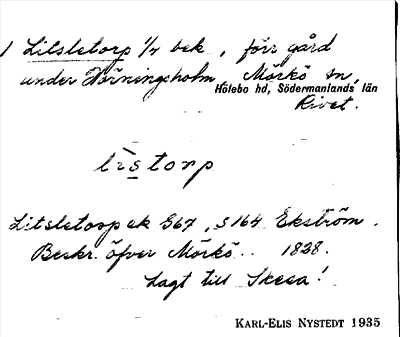 Litsletorp 1/4 bek, förr gård
under Hörningsholm, Mörkö sn,
Hölebo hd, Södermanlands län
Rivet.
lìstorp
Litsletorp ek G67, s 164 Ekström.
Beskr. öfver Mörkö.. 1828.
Lagt till Skesa!
KARL-ELIS NYSTEDT 1935